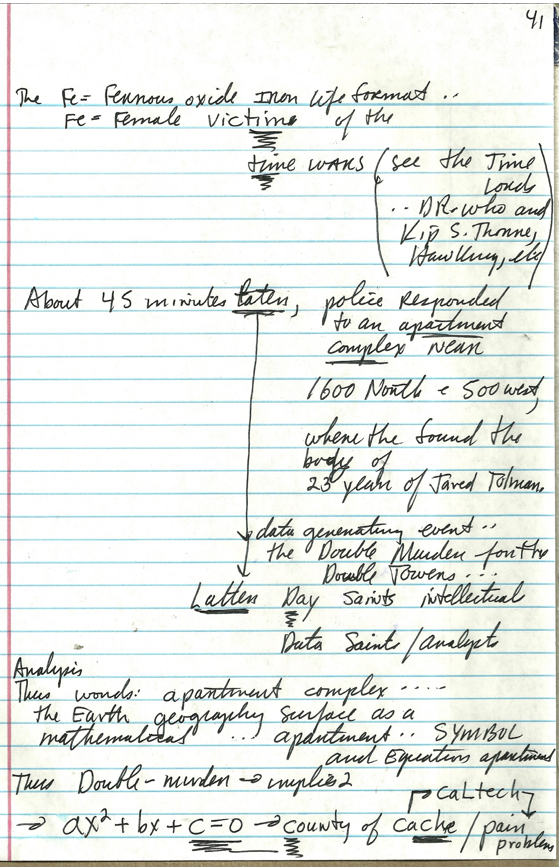 41
The Fe = Ferrous oxide Iron life format ..
Fe = Female victims of the
time wars (see the Time
Lords
.. DR. Who and
Kip S. Thorne,
Hawking, etc)
About 45 minutes later, police responded
to an apartment
complex near
1600 North e 500 west,
where the found the
body of
23 year of Jared Tolman.
data generating event ..
the Double Murder for the
Double Towers ...
Latter Day Saints intellectual
Data Saints / analysts
Analysis
Thus words: apartment complex ....
the Earth geography surface as a
mathematical ... apartment .. SYMBOL
and Equation apartment
Thus Double-murder → implies 2
caLtech
→ ax² + bx + c = 0 → county of cache / pair
problem